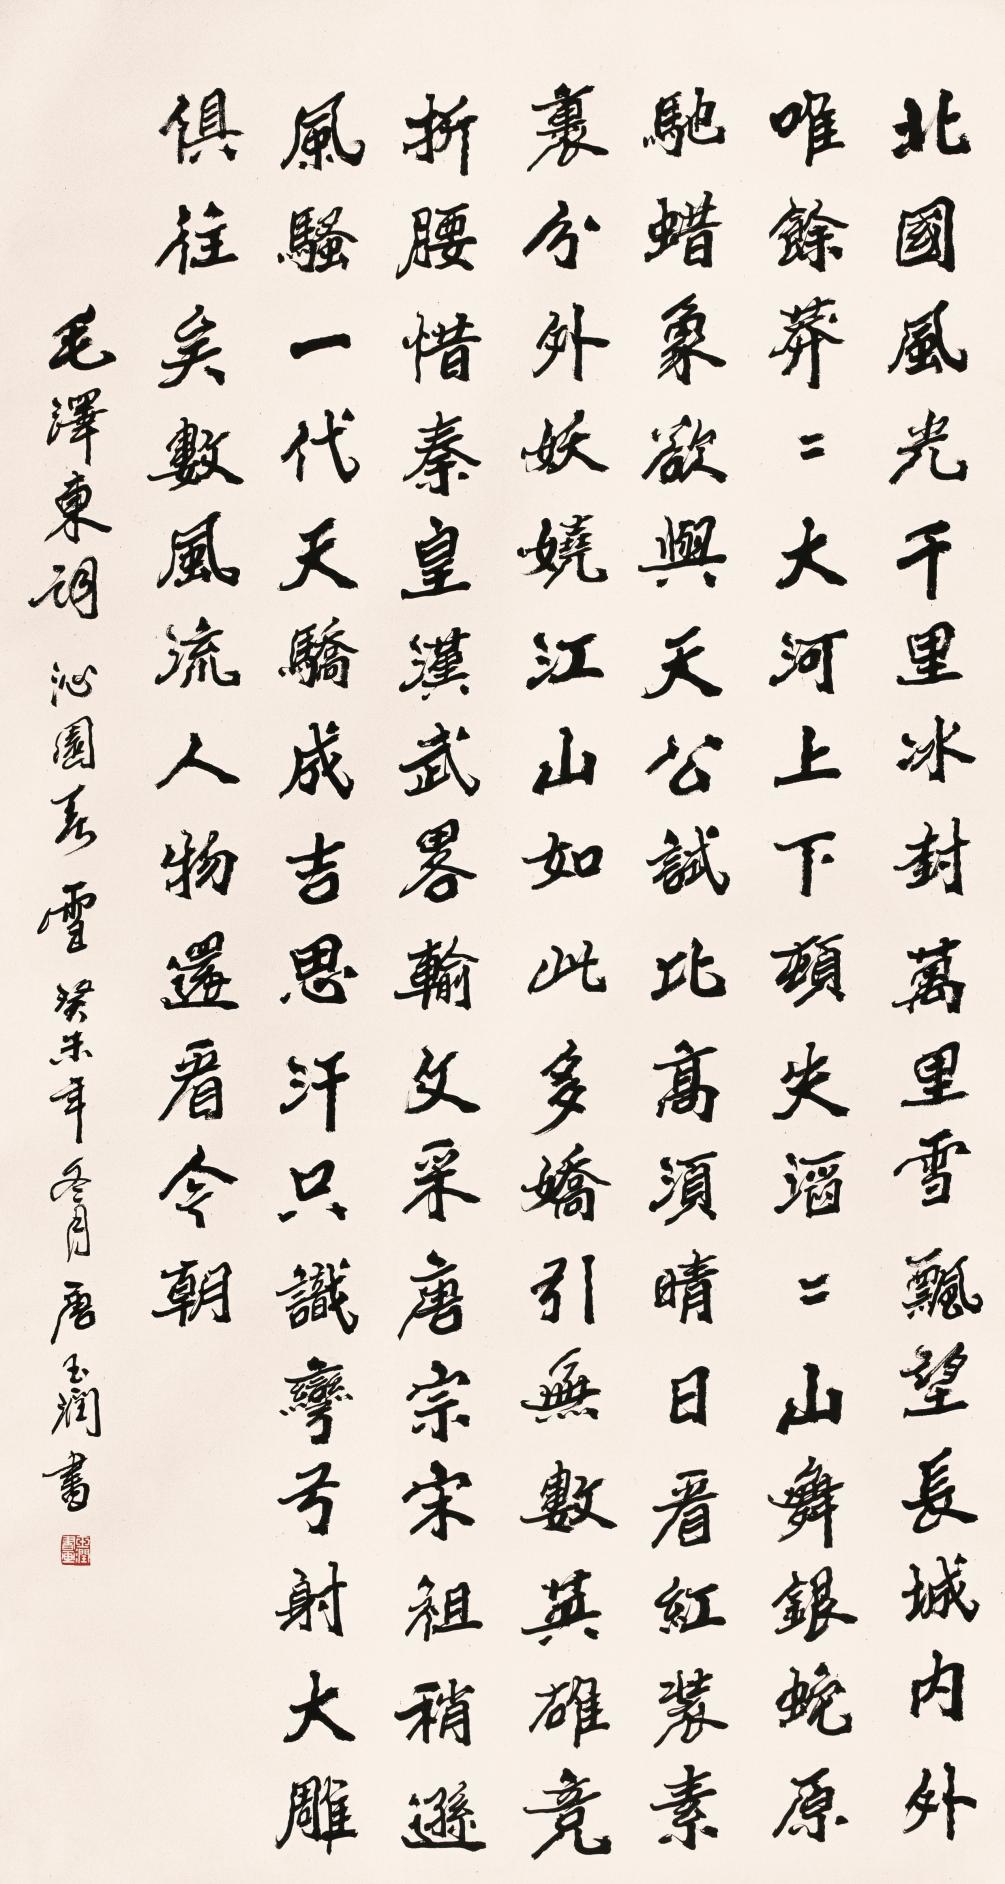 北國風光千里冰封萬里雪飄望長城内外
唯餘莽〻大河上下頓失滔〻山舞銀蛇原
馳蜡象欲與天公試比高須晴日看紅裝素
裹分外妖嬈江山如此多嬌引無數英雄竞
折腰惜秦皇漢武畧輸文采唐宗宋祖稍遜
風騷一代天驕成吉思汗只識彎弓射大雕
俱往矣數風流人物還看今朝
毛澤東詞 沁園春 雪 癸未年冬月唐玉潤書